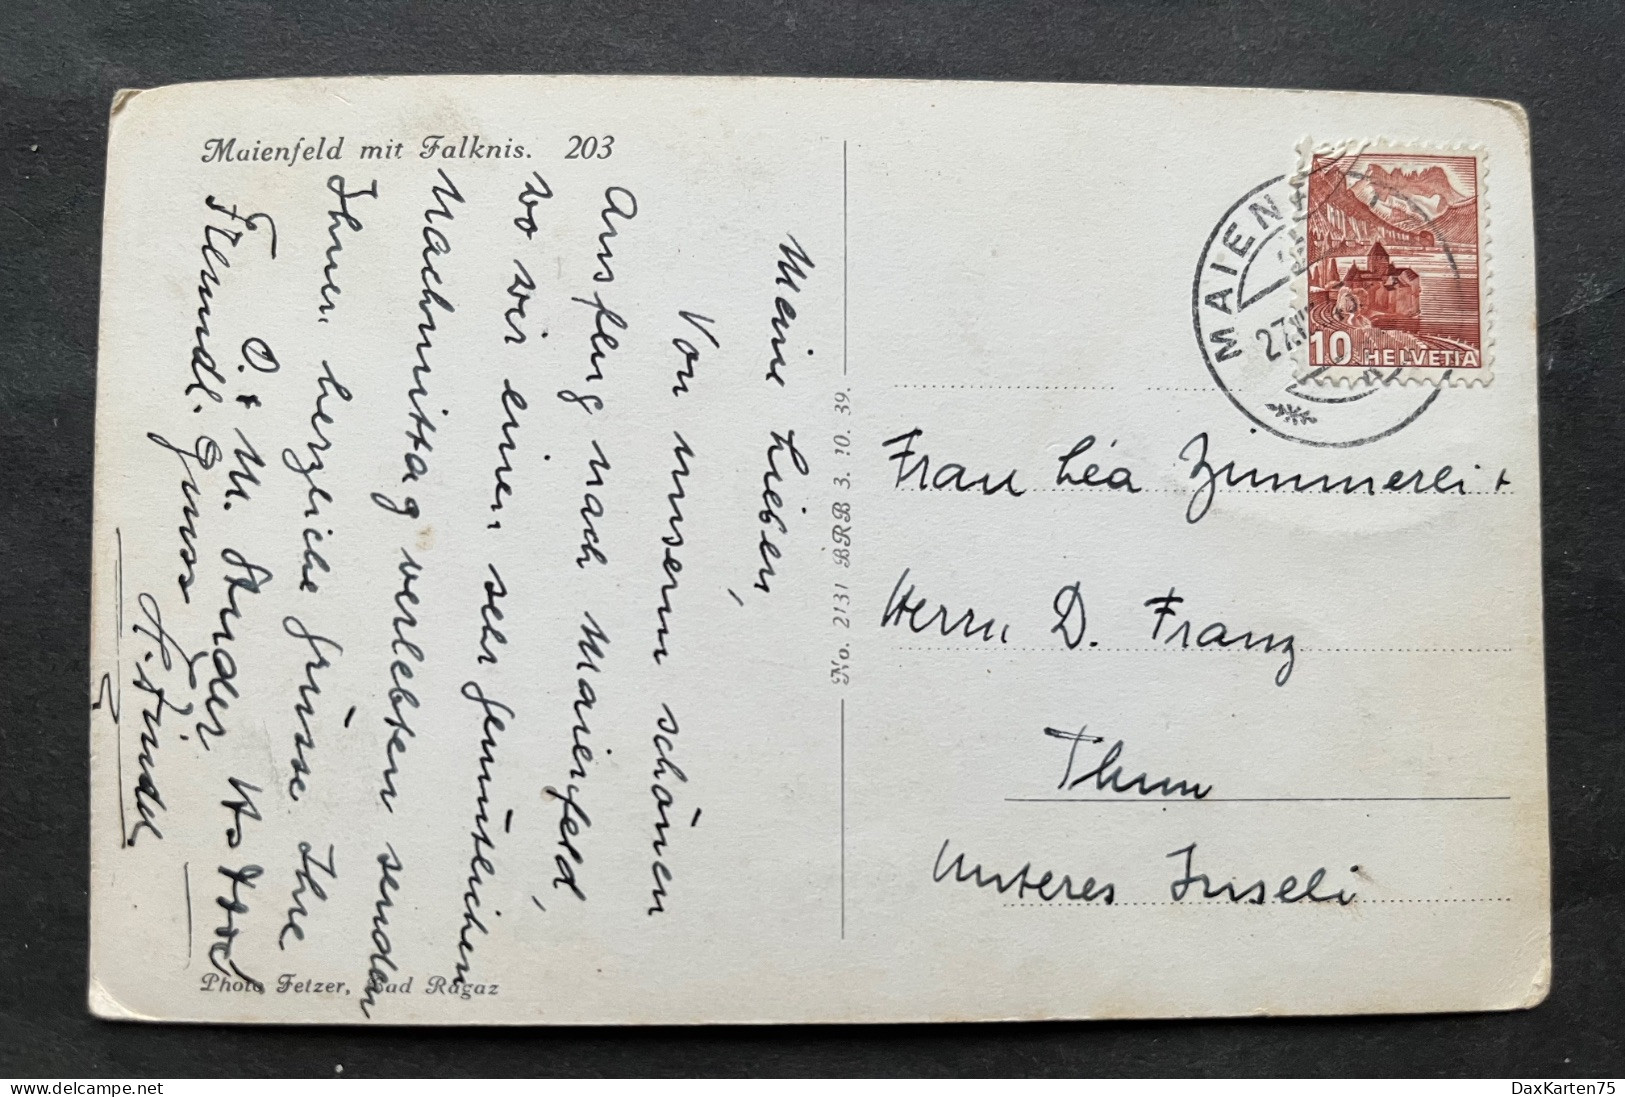 Maienfeld mit Falknis. 203
Meine Lieben,
Von unserm schönen
Ausflug nach Maienfeld,
wo wir einen sehr gemütlichen
Nachmittag verlebten senden
Ihnen herzliche Grüsse Ihre
O. + M. Studer
Freundl. Gruss
Photo Fetzer, Bad Ragaz
No. 2131 BRB 3. 10. 39.
MAIENFELD
27.VII.
10 HELVETIA
Frau Léa Zimmerli +
Herrn D. Franz
Thun
Unteres Inseli
DaxKarten75